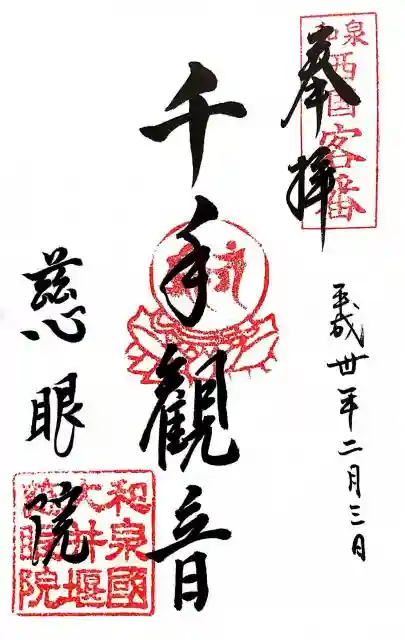 奉拝
和泉西国客番
平成卅年二月三日
千手観音
慈眼院
和泉國
大井堰
慈眼院